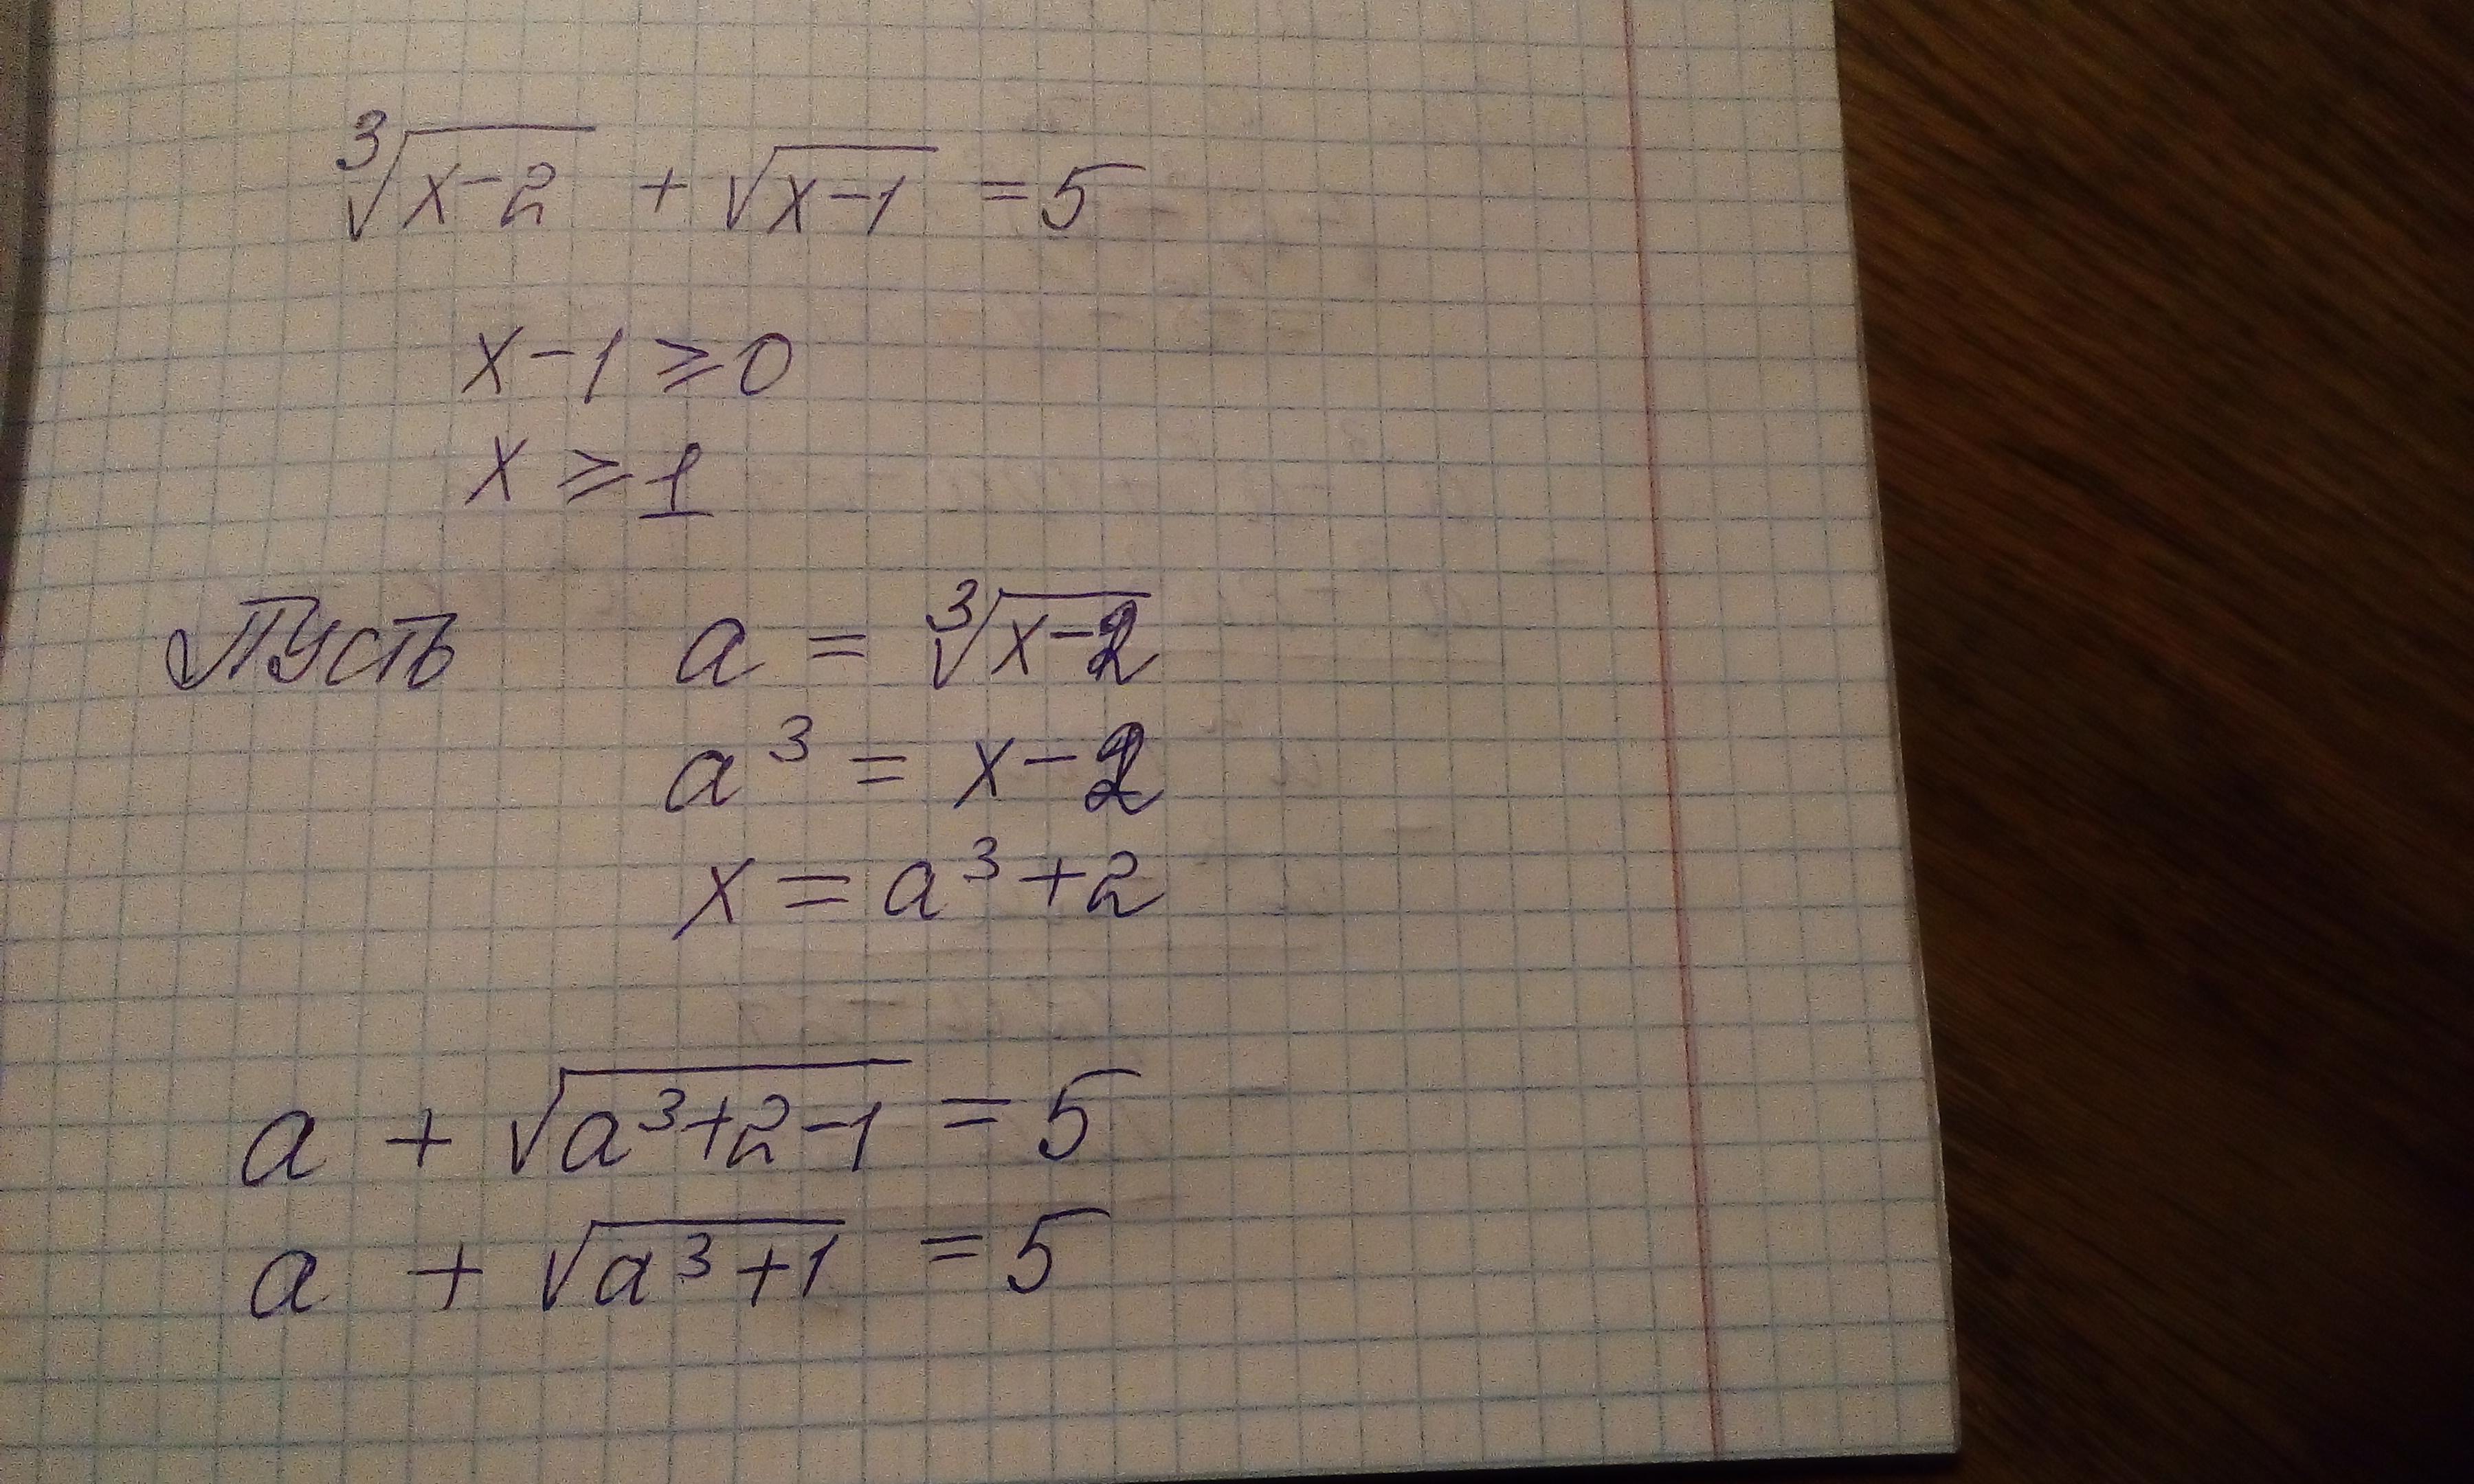 ∛(x-2) + √(x-1) = 5
x-1 ⩾ 0
x ⩾ 1
Пусть a = ∛(x-2)
a³ = x-2
x = a³+2
a + √(a³+2-1) = 5
a + √(a³+1) = 5